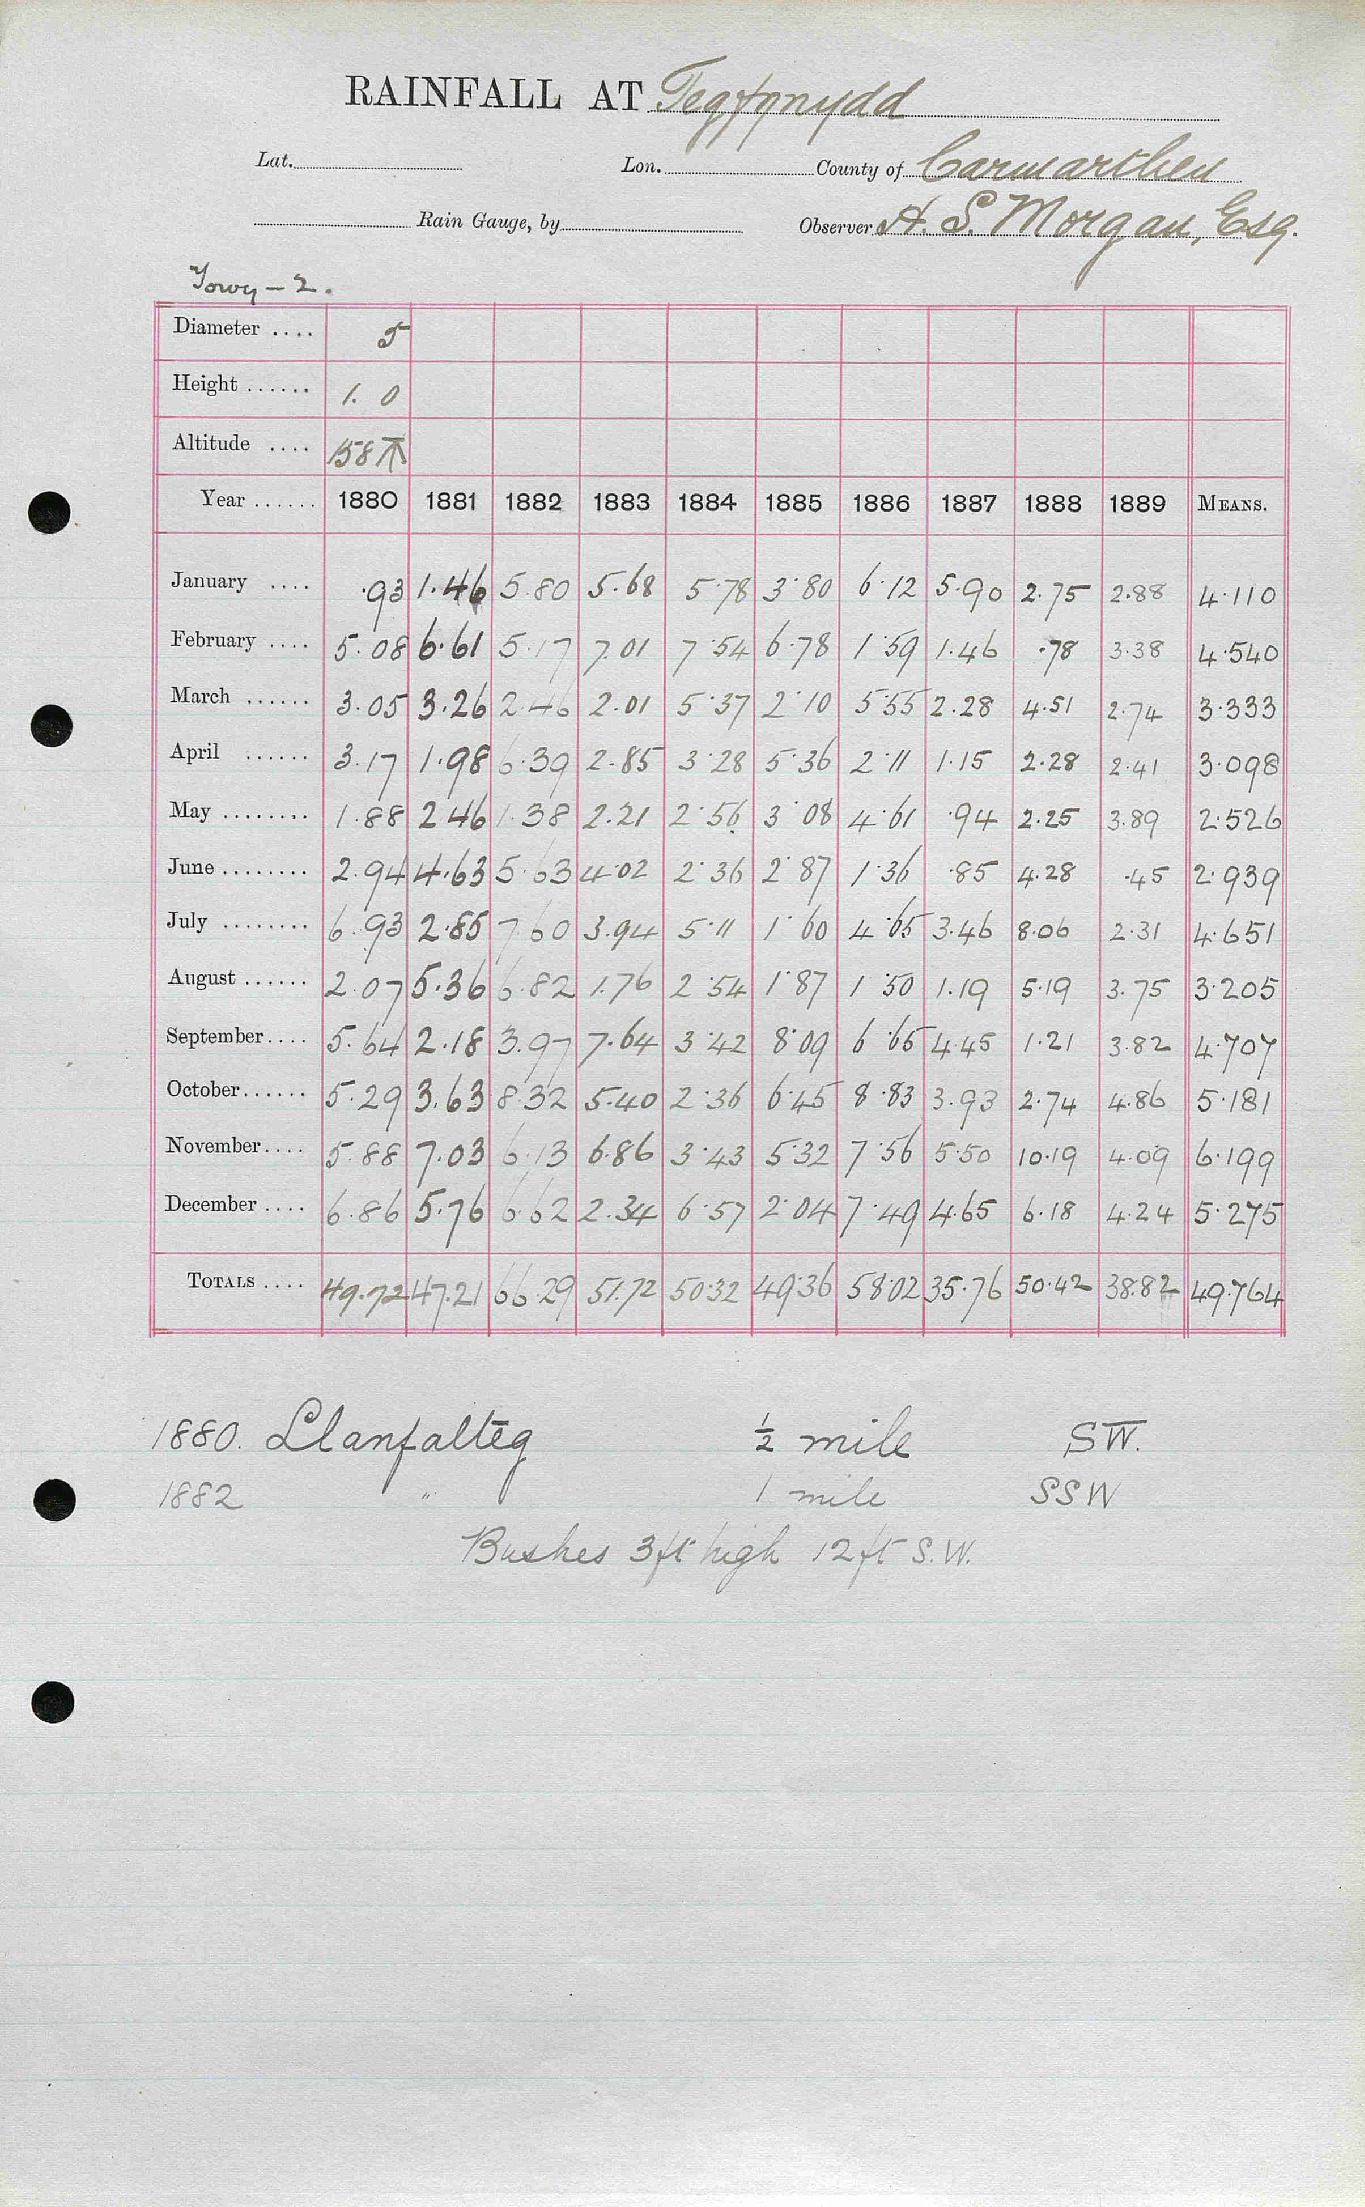 RAINFALL AT Tegfynydd
Lat. Lon. County of Carmarthen
Rain Gauge, by Observer A. S. Morgan, Esq.
Towy - 2.
Diameter .... 5
Height ...... 1. 0
Altitude .... 158
Year ...... 1880 1881 1882 1883 1884 1885 1886 1887 1888 1889 MEANS.
January .... .93 1.46 5.80 5.68 5.78 3.80 6.12 5.90 2.75 2.88 4.110
February .... 5.08 6.61 5.17 7.01 7.54 6.78 1.59 1.46 .78 3.38 4.540
March ...... 3.05 3.26 2.46 2.01 5.37 2.10 5.55 2.28 4.51 2.74 3.333
April ...... 3.17 1.98 6.39 2.85 3.28 5.36 2.11 1.15 2.28 2.41 3.098
May ........ 1.88 2.46 1.38 2.21 2.56 3.08 4.61 .94 2.25 3.89 2.526
June ........ 2.94 4.63 5.63 4.02 2.36 2.87 1.36 .85 4.28 .45 2.939
July ........ 6.93 2.85 7.60 3.94 5.11 1.60 4.65 3.46 8.06 2.31 4.651
August ...... 2.07 5.36 6.82 1.76 2.54 1.87 1.50 1.19 5.19 3.75 3.205
September.... 5.64 2.18 3.97 7.64 3.42 8.09 6.65 4.45 1.21 3.82 4.707
October...... 5.29 3.63 8.32 5.40 2.36 6.45 8.83 3.93 2.74 4.86 5.181
November.... 5.88 7.03 6.13 6.86 3.43 5.32 7.56 5.50 10.19 4.09 6.199
December .... 6.86 5.76 6.62 2.34 6.57 2.04 7.49 4.65 6.18 4.24 5.275
TOTALS .... 49.72 47.21 66.29 51.72 50.32 49.36 58.02 35.76 50.42 38.82 49.764
1880. Llanfalteg ½ mile SW.
1882 " 1 mile SSW
Bushes 3ft high 12ft S.W.